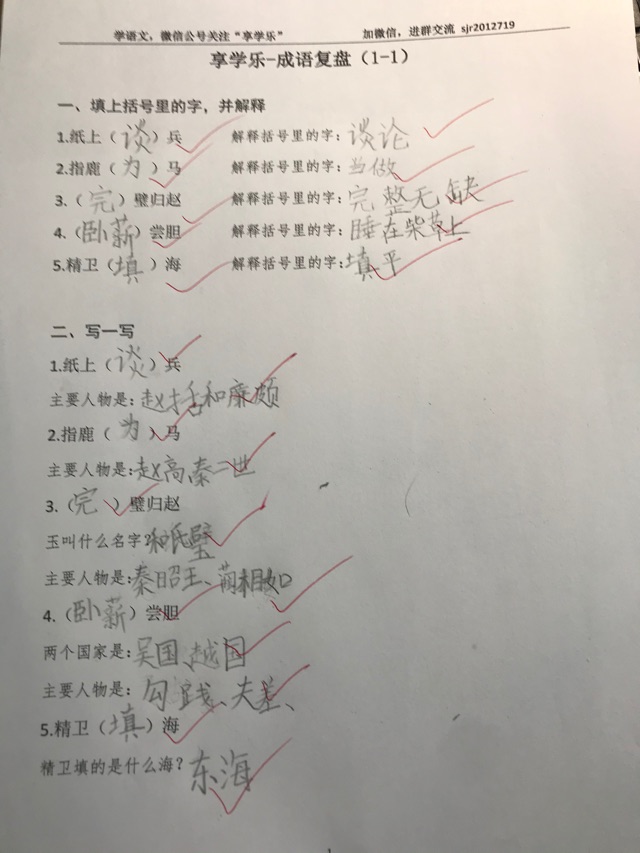 学语文，微信公号关注“享学乐” 加微信，进群交流 sjr2012719
享学乐-成语复盘（1-1）
一、填上括号里的字，并解释
1.纸上（谈）兵 解释括号里的字：谈论
2.指鹿（为）马 解释括号里的字：当做
3.（完）璧归赵 解释括号里的字：完整无缺
4.（卧薪）尝胆 解释括号里的字：睡在柴草上
5.精卫（填）海 解释括号里的字：填平
二、写一写
1.纸上（谈）兵
主要人物是：赵括和廉颇
2.指鹿（为）马
主要人物是：赵高秦二世
3.（完）璧归赵
玉叫什么名字？和氏璧
主要人物是：秦昭王、蔺相如
4.（卧薪）尝胆
两个国家是：吴国、越国
主要人物是：勾践、夫差、
5.精卫（填）海
精卫填的是什么海？东海